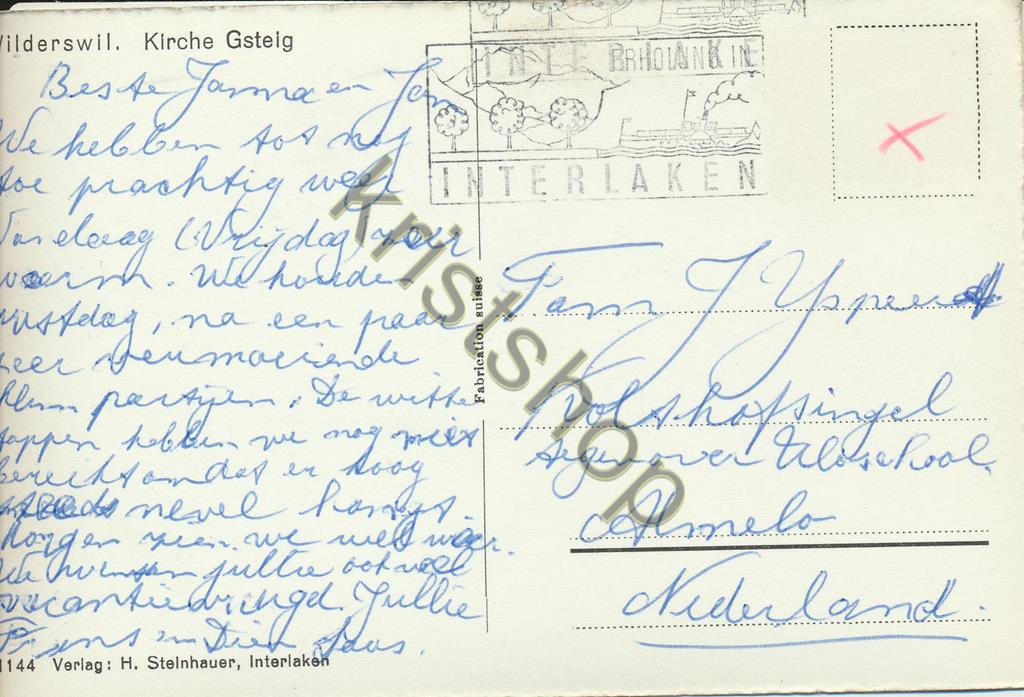 Wilderswil. Kirche Gsteig
Beste Janna en Jan
We hebben tot nog
toe prachtig weer
Vandaag (Vrijdag) zeer
warm. We houden
rustdag, na een paar
zeer vermoeiende
klim partijen. De witte
toppen hebben we nog niet
bereikt omdat er hoog
steeds nevel hangt.
Morgen zien we wel weer.
We wensen jullie ook veel
vacantievreugd. Jullie
en Dien
1144 Verlag: H. Steinhauer, Interlaken
INTERLAKEN
Fabrication suisse
Fam J
Kolthofsingel
tegenover Uloschool.
Almelo
Nederland.
kristshop